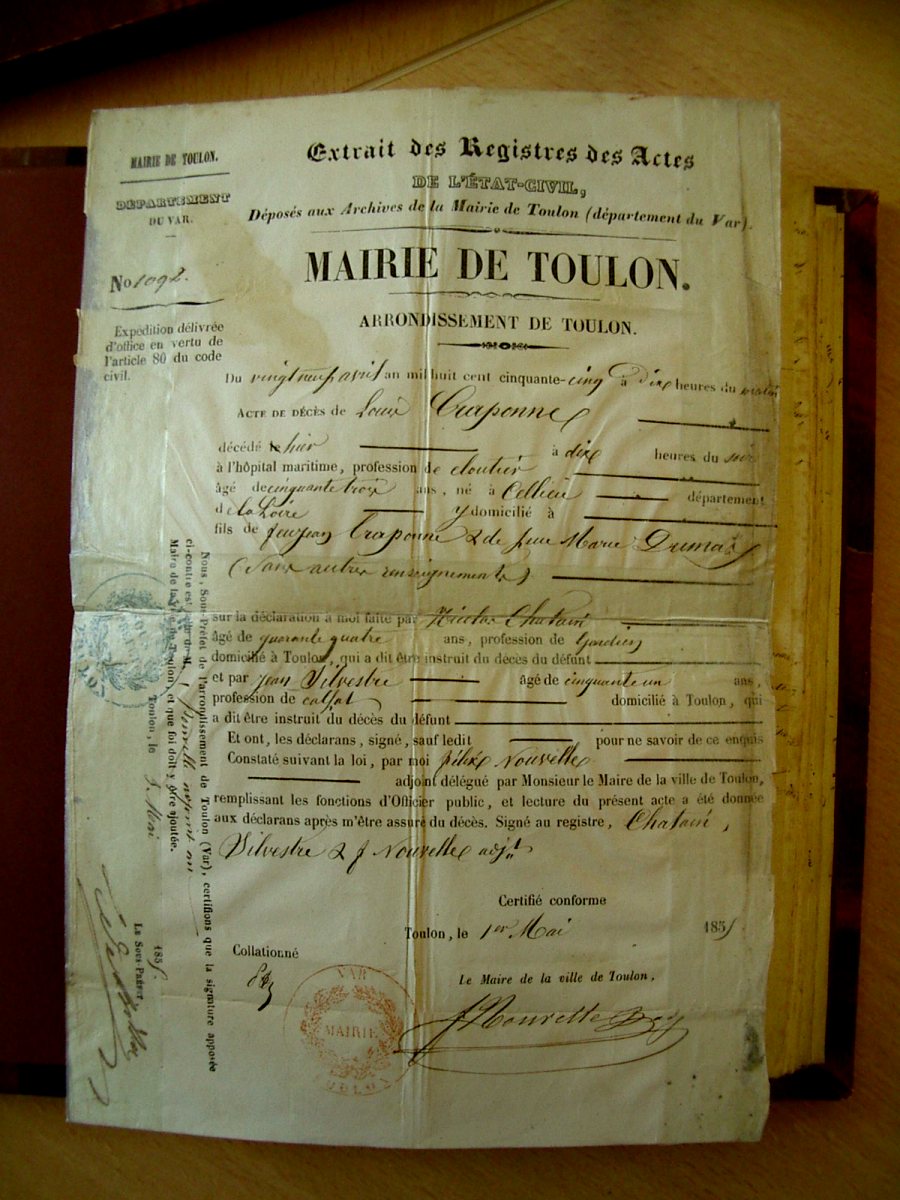 MAIRIE DE TOULON.
DÉPARTEMENT
DU VAR.
No 1092.
Expédition délivrée
d'office en vertu de
l'article 80 du code
civil.
Extrait des Registres des Actes
DE L'ÉTAT-CIVIL,
Déposés aux Archives de la Mairie de Toulon (département du Var).
MAIRIE DE TOULON.
ARRONDISSEMENT DE TOULON.
Du vingt neuf avril an mil huit cent cinquante-cinq à dix heures du matin
ACTE DE DÉCÈS de Louis Craponne
décédé hier à dix heures du soir
à l'hôpital maritime, profession de cloutier
âgé de cinquante trois ans, né à Cellieu département
de la Loire y domicilié à
fils de feu Jean Craponne & de feue Marie Dumas
(sans autres renseignements)
sur la déclaration à moi faite par Nicolas Chatain
âgé de quarante quatre ans, profession de Gardien
domicilié à Toulon, qui a dit être instruit du décès du défunt
et par Jean Silvestre âgé de cinquante un ans,
profession de calfat domicilié à Toulon, qui
a dit être instruit du décès du défunt
Et ont, les déclarans, signé, sauf ledit pour ne savoir de ce enquis
Constaté suivant la loi, par moi félix Nouvelle
adjoint délégué par Monsieur le Maire de la ville de Toulon,
remplissant les fonctions d'Officier public, et lecture du présent acte a été donnée
aux déclarans après m'être assuré du décès. Signé au registre, Chatain,
Silvestre & f Nouvelle adjt
Certifié conforme
Toulon, le 1er Mai 1855
Collationné
Le Maire de la ville de Toulon,
f Nouvelle
VAR
MAIRIE
TOULON
Nous, Sous-Préfet de l'arrondissement de Toulon (Var), certifions que la signature apposée
ci-contre est de M.
Maire de la ville de Toulon, et que foi doit y être ajoutée.
Toulon, le Mai 1855.
Le Sous-Préfet